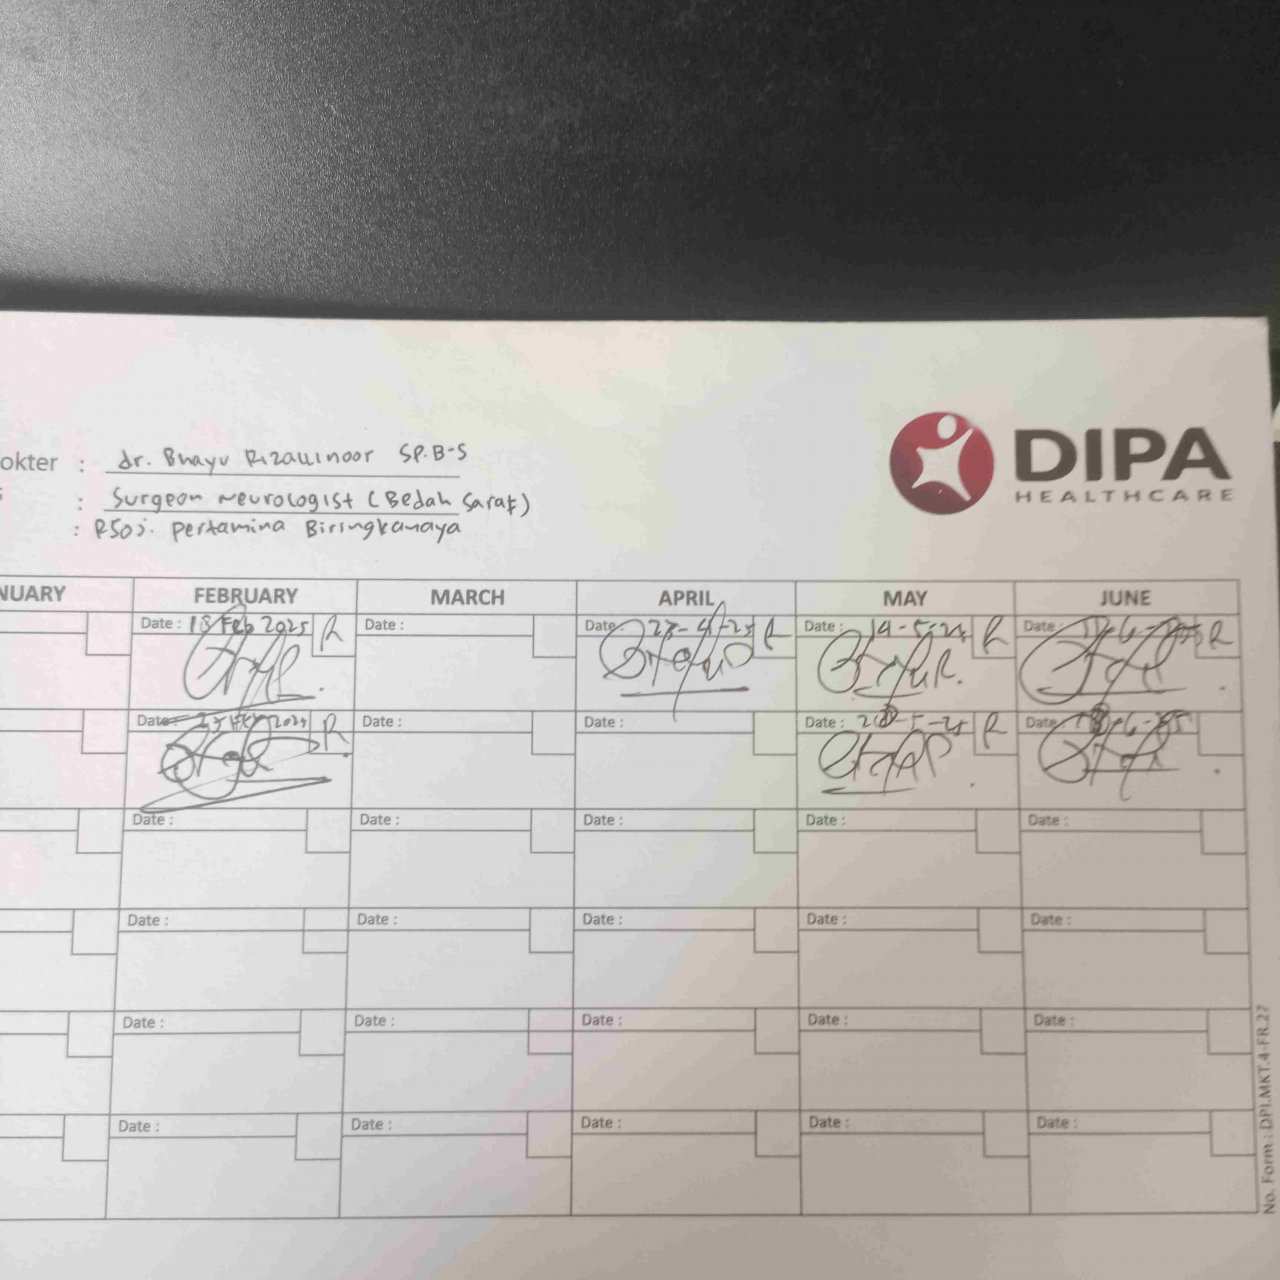 DIPA
HEALTHCARE
okter : dr. Bhayu Rizallinoor SP.B-S
: Surgeon neurologist (Bedah Saraf)
: RSoj. Pertamina Biringkanaya
NUARY FEBRUARY MARCH APRIL MAY JUNE
Date : 18 Feb 2025 R Date : Date : 23-4-25 R Date : 19-5-25 R Date R
Date 2025 R Date : Date : Date : 5-25 R Date
Date : Date : Date : Date : Date :
Date : Date : Date : Date : Date :
Date : Date : Date : Date : Date :
Date : Date : Date : Date : Date :
No. Form : DPI.MKT.4-FR.27